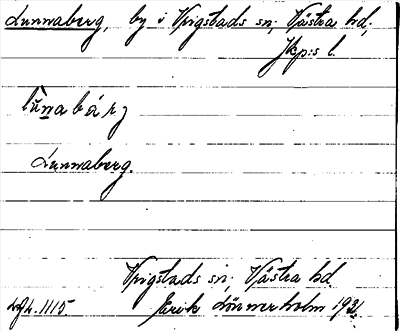 Lunnaberg, by i Vrigstads sn; Västra hd,
Jkp:s l.
lùnabárj
Lunnaberg.
Vrigstads sn; Västra hd
Erik Lönnerholm 1931.